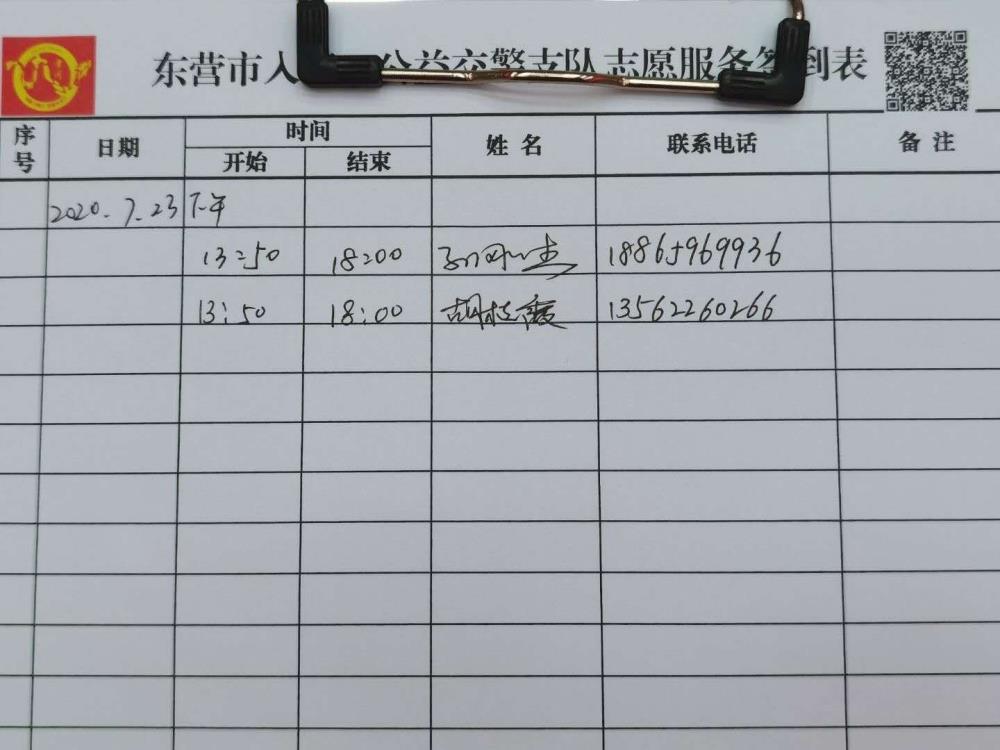 东营市人 公益交警支队志愿服务签到表
序号 日期 时间 姓名 联系电话 备注
开始 结束
2020.7.23 下午
13:50 18:00 18865969936
13:50 18:00 胡 霞 13562260266